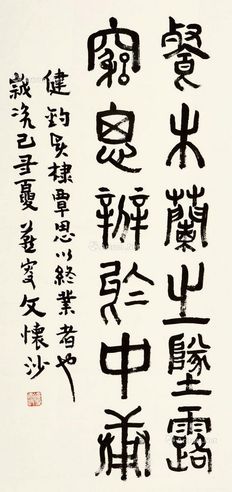 餐木蘭之墜露
窮思辨於中庸
健鈞吳棣覃思以終業者也
歲次己丑夏燕叟文懷沙